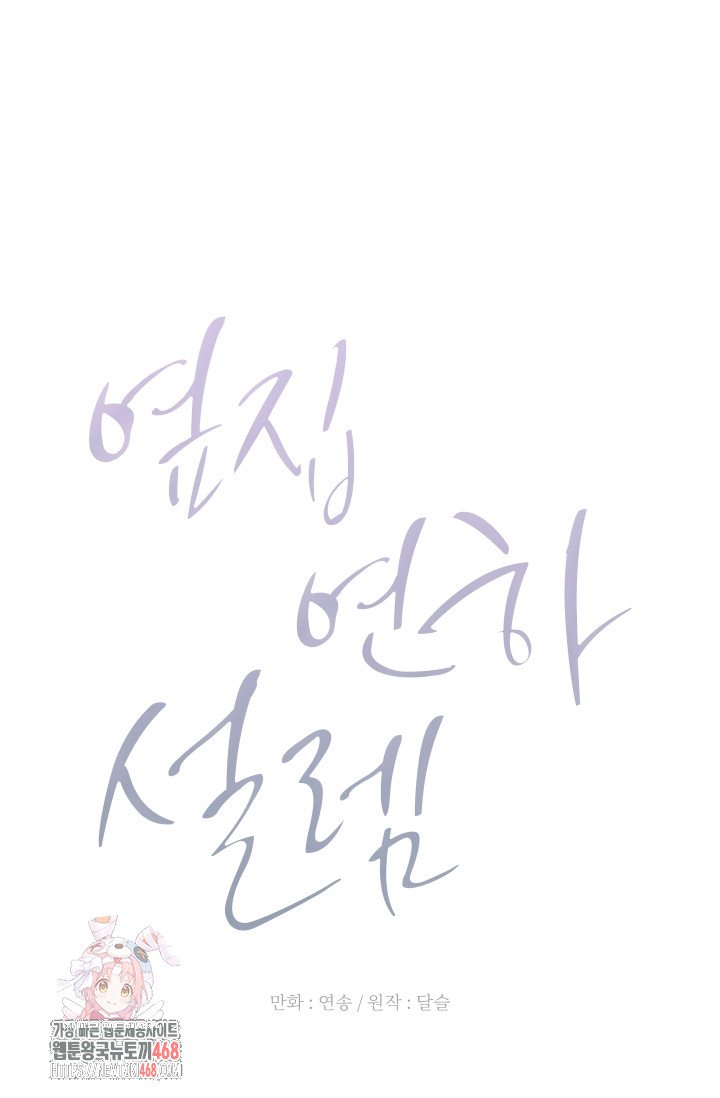 옆집
연하
설렘
만화 : 연송 / 원작 : 달슬
가장 빠른 웹툰제공사이트
웹툰왕국뉴토끼468
HTTPS://NEWTOKI468.COM